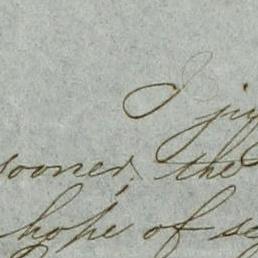 I
sooner, the
hope of